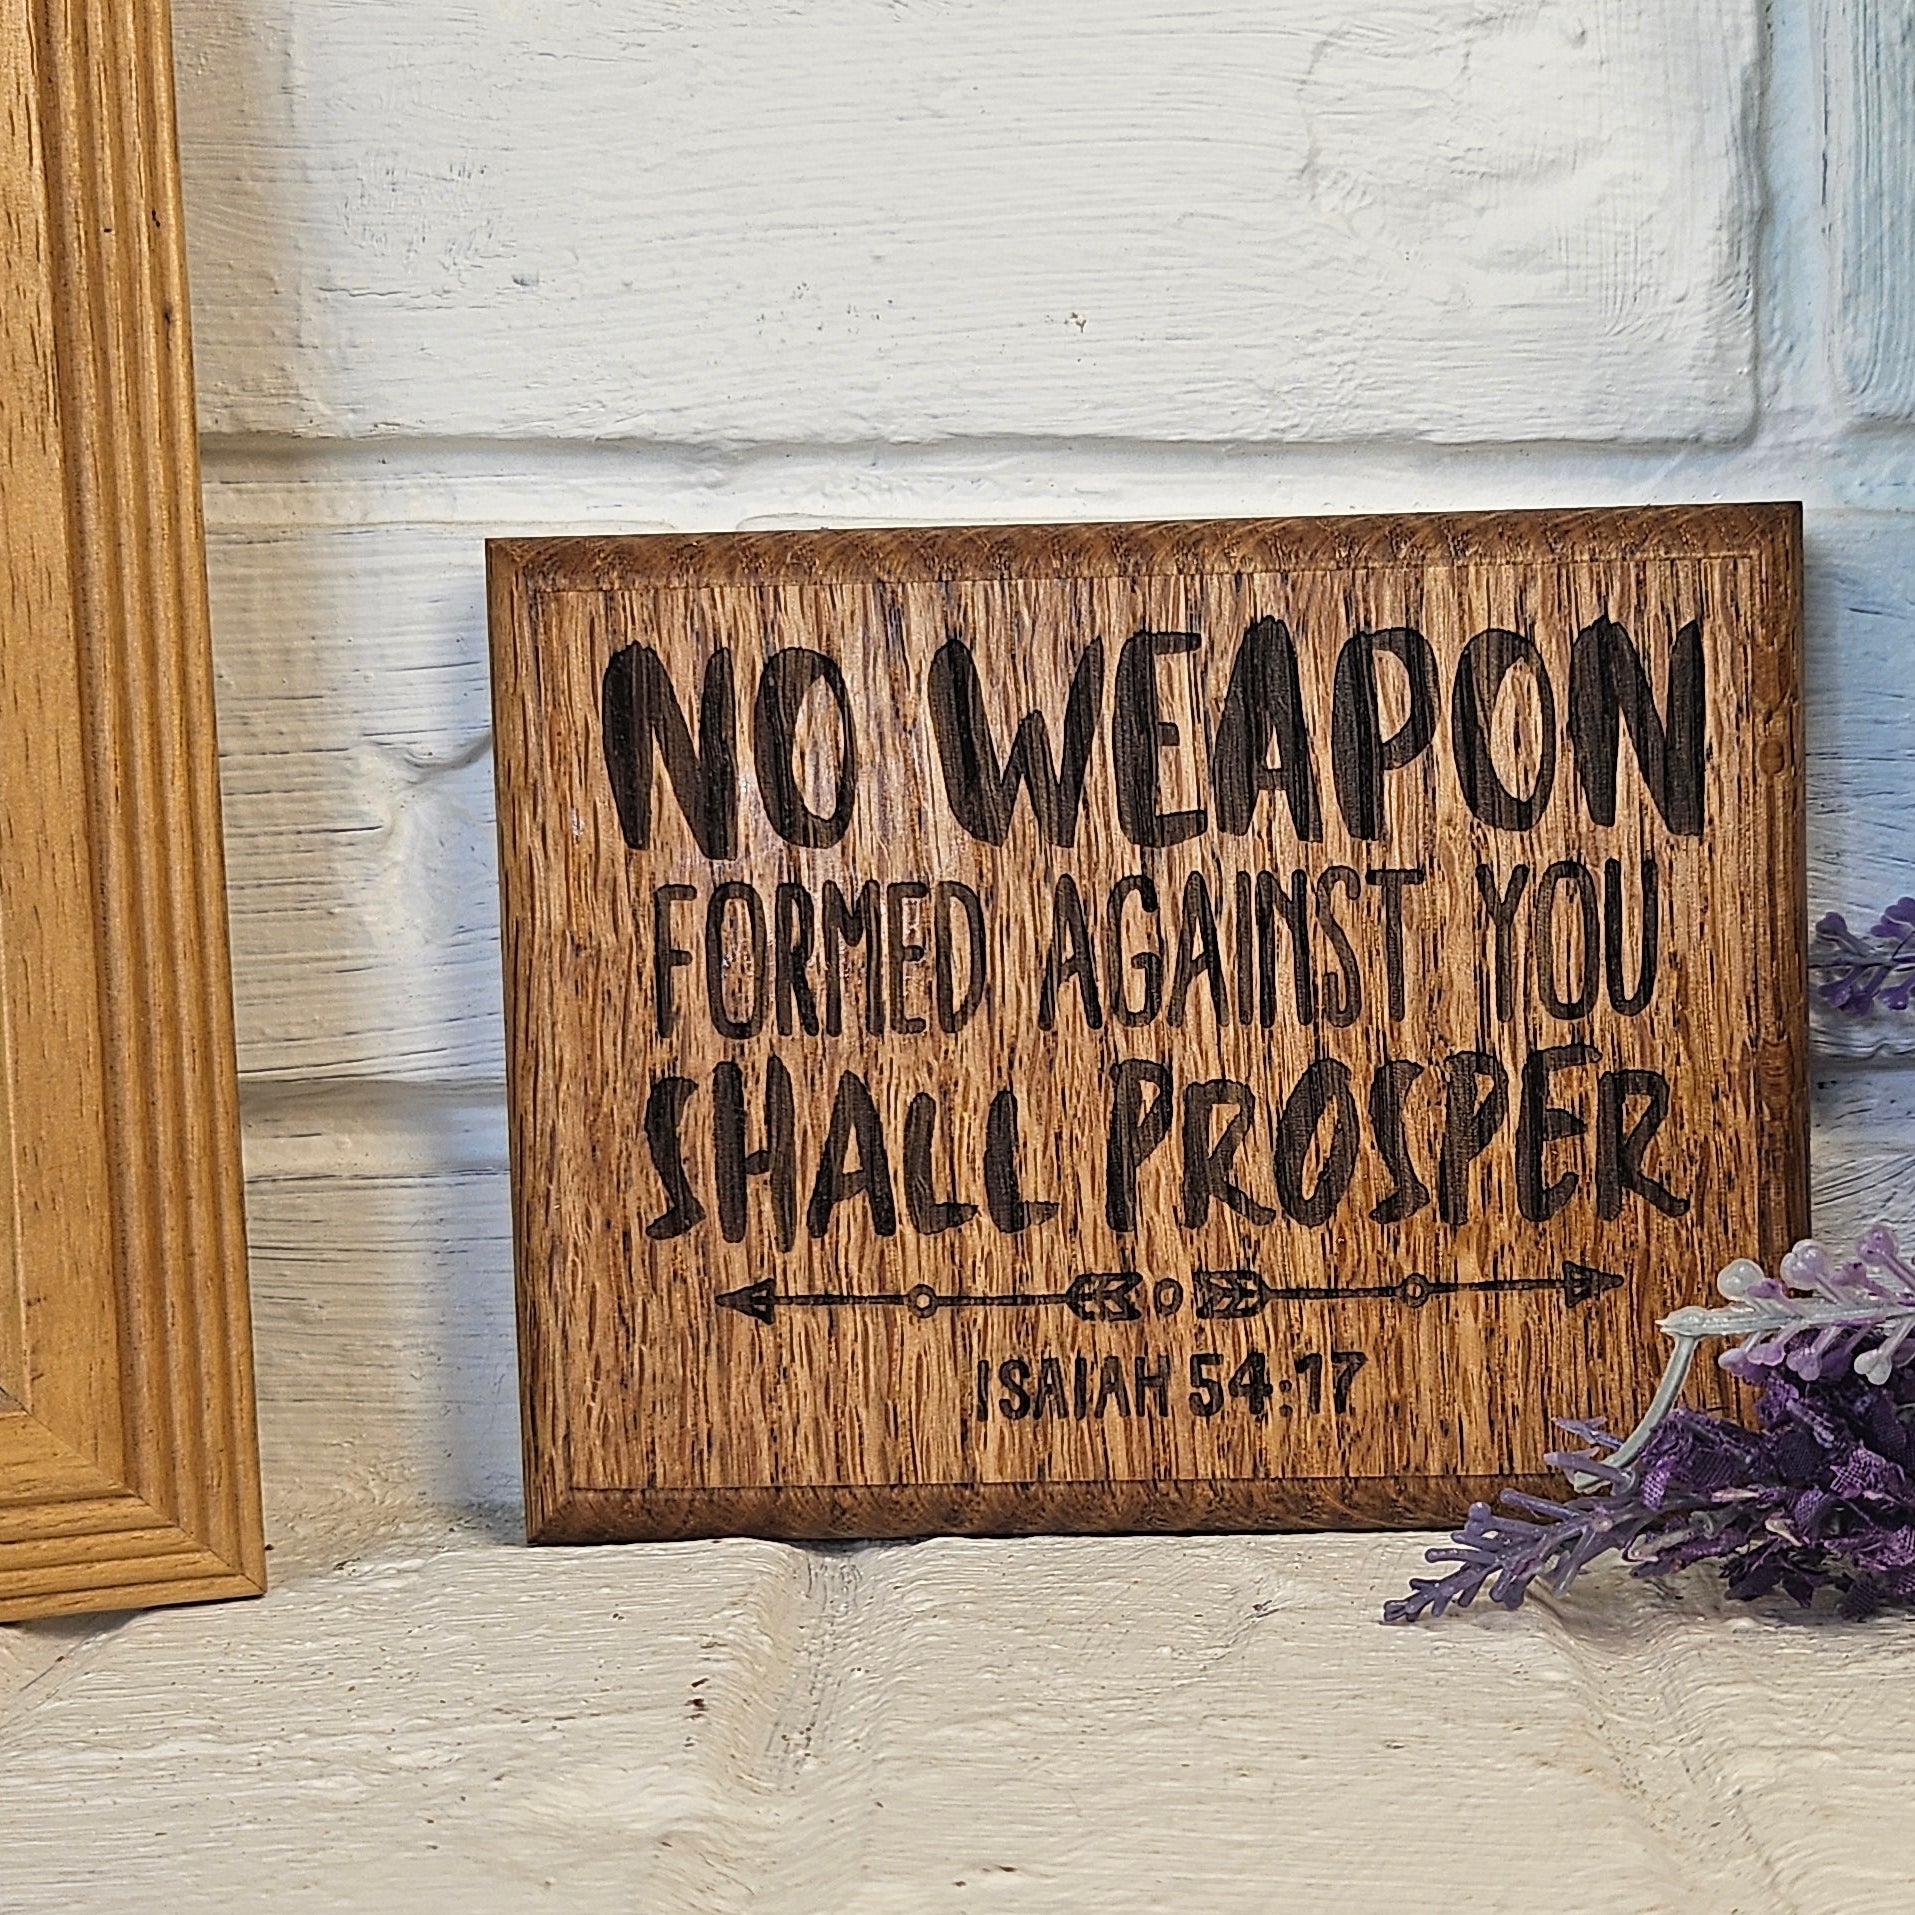 NO WEAPON
FORMED AGAINST YOU
SHALL PROSPER
ISAIAH 54:17